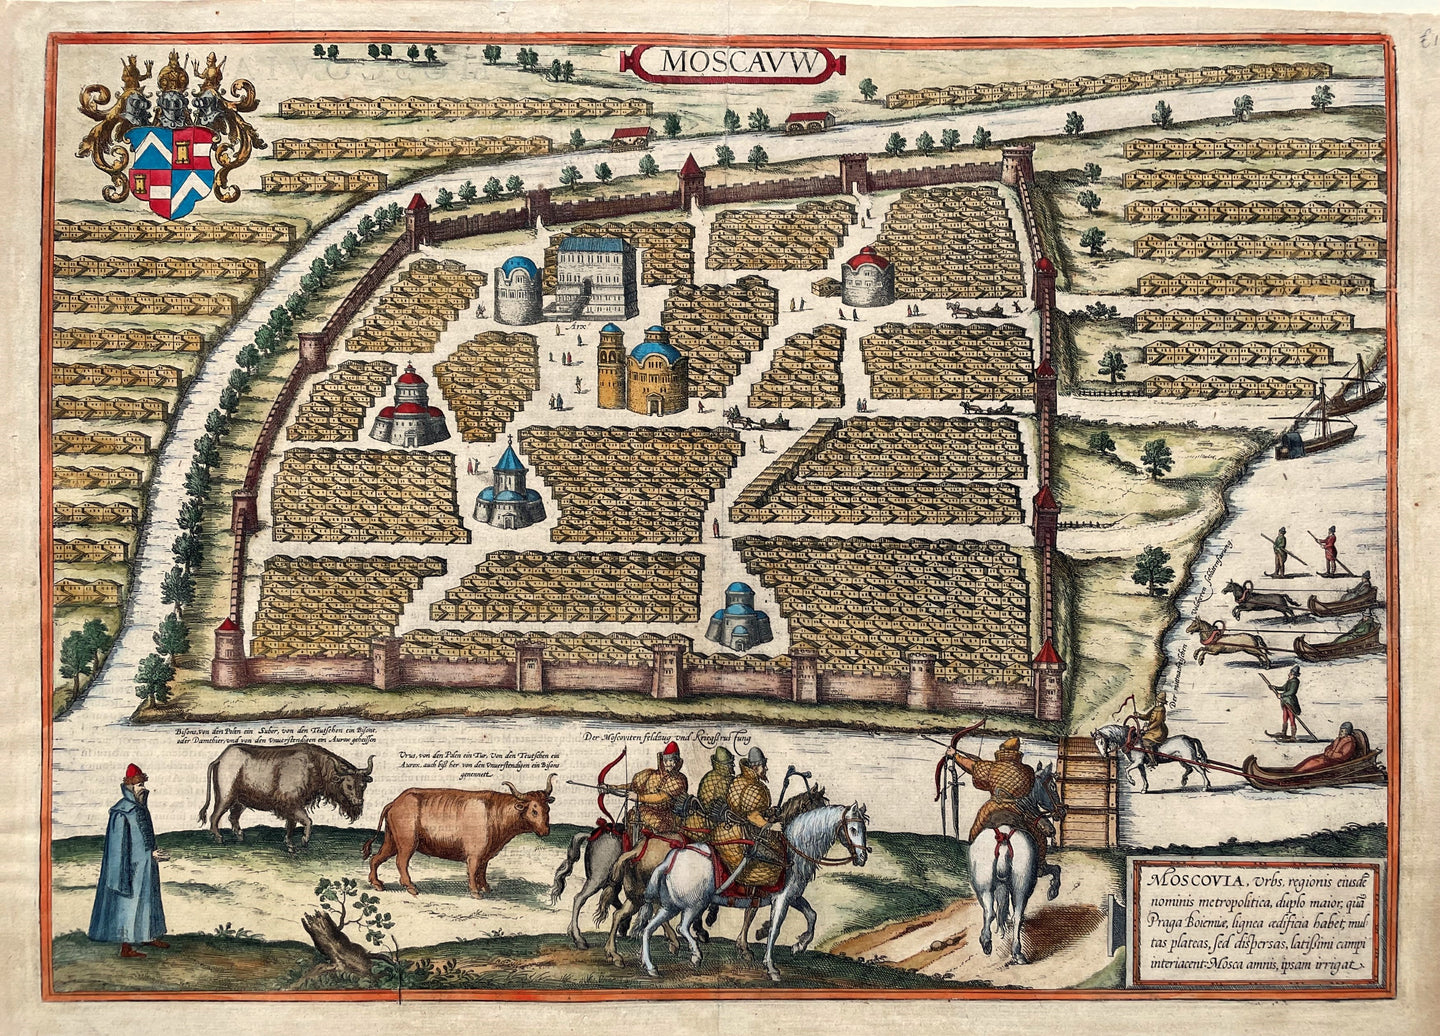 MOSCAVW
Arx
Bisons, von den Polen ein Suber, von den Teutschen ein Bisont,
oder Damthier, und von den Unverstendigen ein Aurox geheissen
Urus, von den Polen ein Tur, Von den Teutschen ein
Aurox, auch biß her von den Unverstendigen ein Bisons
genennett.
Der Moscoviten feldzug und Kriegßrustung
Der
MOSCOVIA, Vrbs, regionis eiusdē
nominis metropolitica, duplo maior, quā
Praga Boiemiæ, lignea ædificia habet, mul
tas plateas, sed dispersas, latissimi campi
interiacent: Mosca amnis, ipsam irrigat.